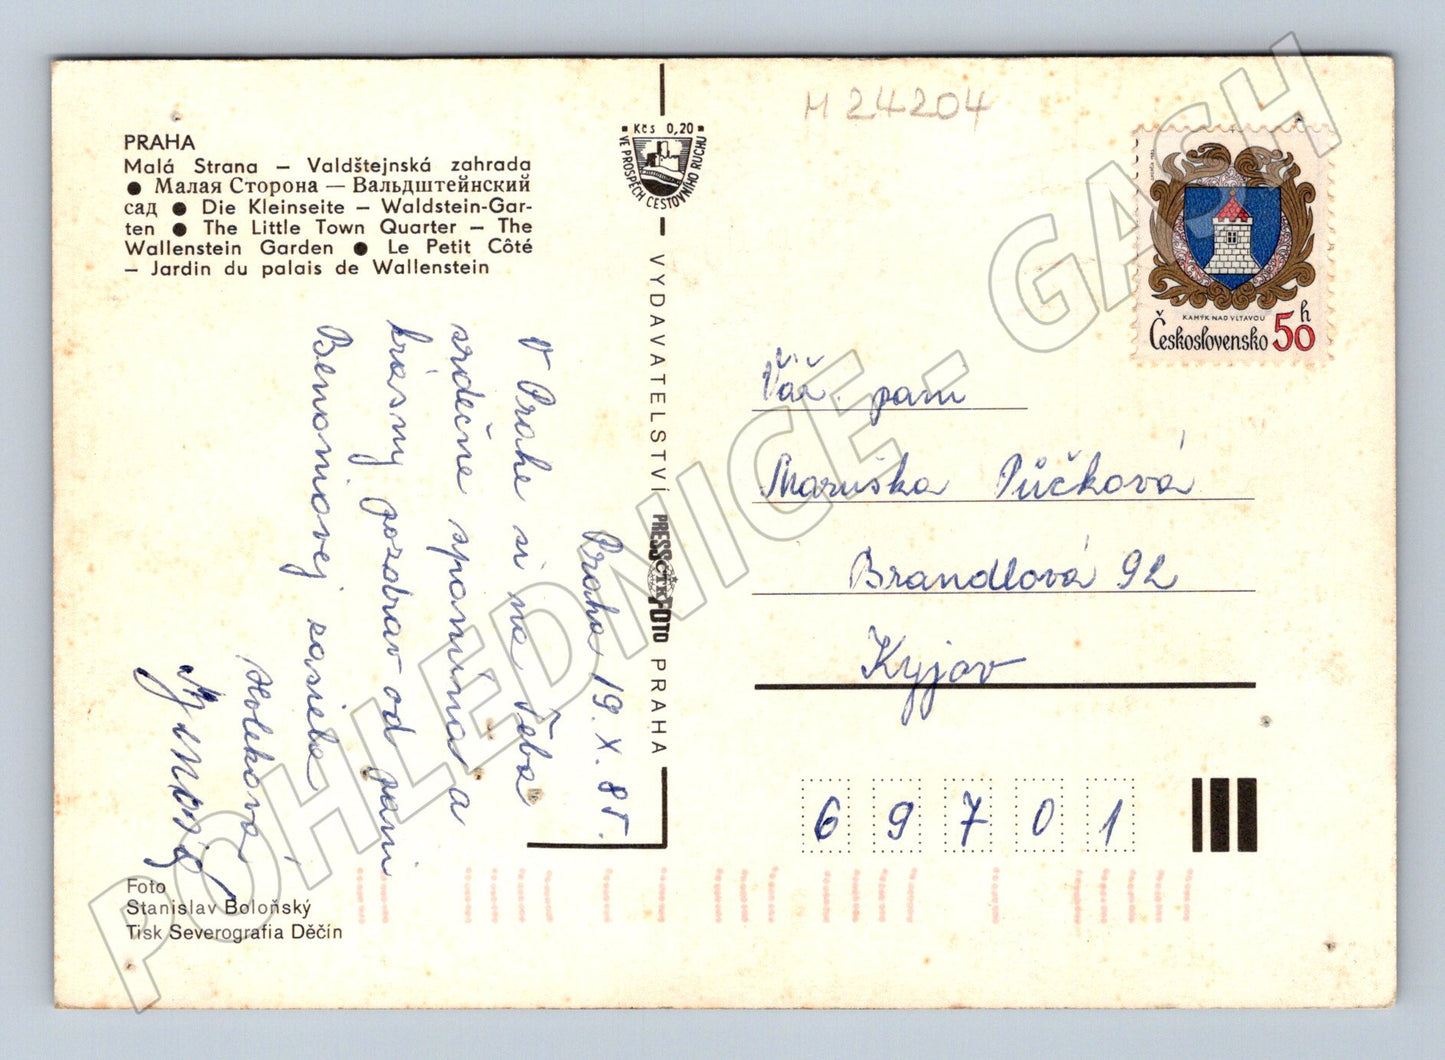 M 24204
PRAHA
Malá Strana – Valdštejnská zahrada
● Малая Сторона — Вальдштейнский
сад ● Die Kleinseite – Waldstein-Gar-
ten ● The Little Town Quarter – The
Wallenstein Garden ● Le Petit Côté
– Jardin du palais de Wallenstein
Kčs 0,20
VE PROSPĚCH CESTOVNÍHO RUCHU
VYDAVATELSTVÍ PRESSFOTO PRAHA
ČTK
KAMÝK NAD VLTAVOU
Československo 50 h
Praha 19. X. 85.
V Prahe si na Teba
srdečne spomína a
krásny pozdrav od pani
zasiela
Holeková
Váž. pani
Maruška Půčková
Brandlová 92
Kyjov
69701
Foto
Stanislav Boloňský
Tisk Severografia Děčín
POHLEDNICE - GASH